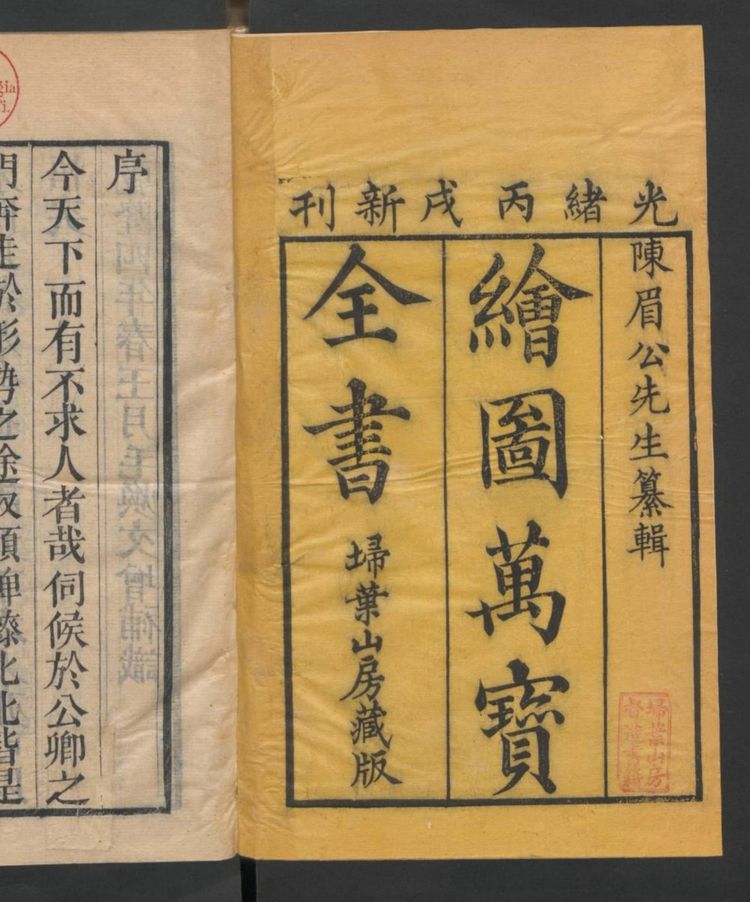 光緒丙戌新刊
陳眉公先生纂輯
埽葉山房
督造書籍
繪圖萬寶
全書
埽葉山房藏版
序
今天下而有不求人者哉伺候於公卿之
門奔走於形勢之途奴顏婢膝比比皆是